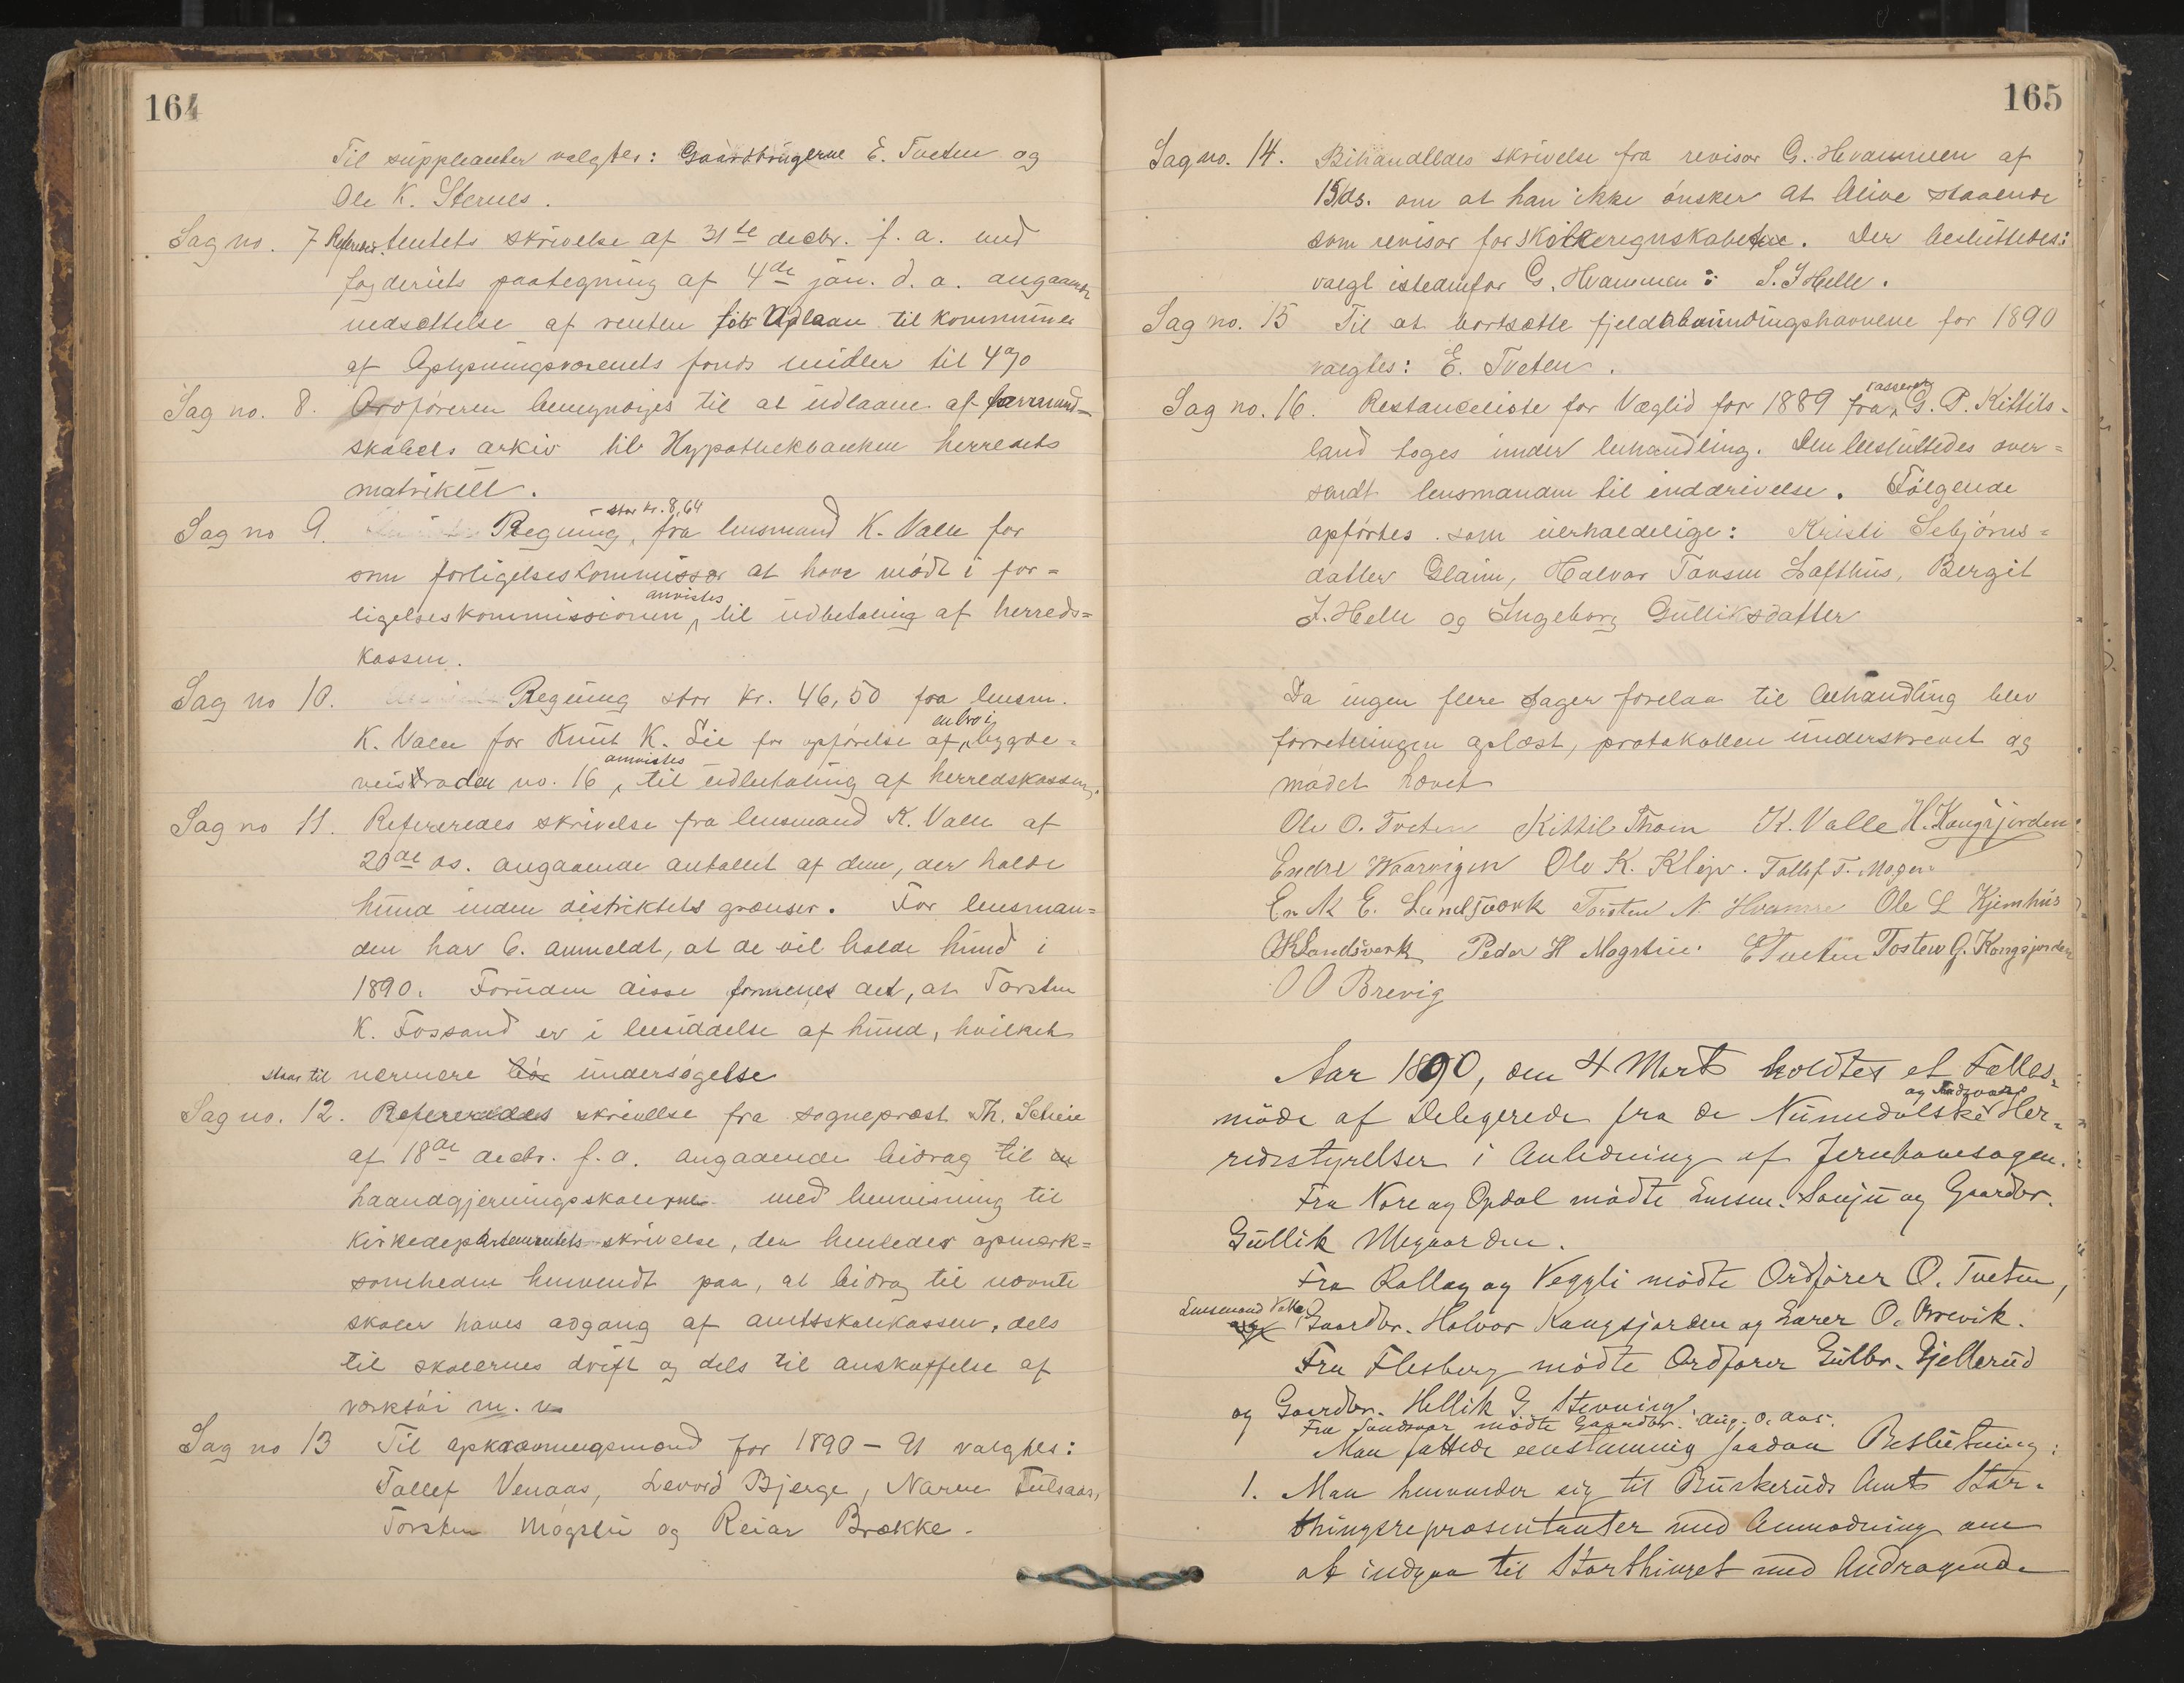 164
Til suppleanter valgtes: Gaardbrugerne E. Tveten og
Ole K. Sternes.
Sag no. 7 Refereredes skrivelse af 31te decbr. f. a. med
fogderiets paategning af 4de jan. d. a. angaaende
nedsættelse af renten for Udlaan til kommuner
af Oplysningsvæsenets fonds midler til 4%
Sag no. 8. Ordføreren bemyndiges til at udlaane af formand=
skabets arkiv til Hypothekbanken herredets
matrikul.
- stor kr. 8,64
Sag no 9. Regning, fra lensmand K. Valle for
som forligelseskommissær at have mødt i for=
anvistes
ligelseskommissionen, til udbetaling af herreds=
kassen.
Sag no 10. Regning stor kr. 46,50 fra lensm.
en bro i
K. Valle for Knut K. Lie for opførelse af bygde=
anvistes
veis rode no. 16, til udbetaling af herredskassen.
Sag no 11. Refereredes skrivelse fra lensmand K. Valle af
20de ds. angaaende antallet af dem, der holde
hund inden distriktets grænser. For lensman=
den har 6. anmeldt, at de vil holde hund i
1890. Foruden disse formenes det, at Torsten
K. Fossand er i besiddelse af hund, hvilket
staar til nærmere bør undersøgelse
Sag no. 12. Refereredes skrivelse fra sogneprest Th. Scheie
af 18de decbr. f. a. angaaende bidrag til en
haandgjerningsskolerne med henvisning til
Kirkedepartementets skrivelse, der henledes opmærk=
somheden henvendt paa, at bidrag til nævnte
skoler haves adgang af amtsskolekassen, dels
til skolernes drift og dels til anskaffelse af
værktøi m. v.
Sag no 13 Til opkrævningsmænd for 1890 - 91 valgtes:
Tollef Venaas, Levord Bjerge, Narve Fulsaas,
Torsten Mogslie og Reiar Brække.
165
Sag no. 14. Behandledes skrivelse fra revisor G. Hvammen af
15/ds. om at han ikke ønsker at blive staaende
som revisor for skoleregnskabene. Der besluttedes:
valgt istedenfor G. Hvammen: S. J Helle.
Sag no. 15 Til at bortsætte fjeldalmindingshavnene for 1890
valgtes: E. Tveten.
kasserer
Sag no. 16. Restanceliste for Væglid for 1889 fra G. P. Kittils-
land toges under behandling. Den besluttedes over=
sendt lensmanden til inddrivelse. Følgende
opførtes som uerholdelige: Kristi Sebjørns=
datter Glaim, Halvor Tovsen Lofthus, Bergit
J. Helle og Ingeborg Gulliksdatter
Da ingen flere sager forelaa til behandling blev
forretningen oplæst, protokollen underskrevet og
mødet hævet
Ole O. Tveten Kittil Thoen K. Valle H. Kongsjorden
Endre Waarvigen Ole K. Klev. Tollef T. Mogen
Erik E. Landsværk Torsten N. Hvamme Ole L Kjemhus
OKLandsverk Peder H Mogslie. ETveten Tosten G. Kongsjorden
O O Brevig
Aar 1890, den 4 Marts holdtes et Fælles-
og Sandsvær
møde af Delegerede fra de Numedalske Her-
redsstyrelser i Anledning af Jernbanesagen.
Fra Nore og Opdal mødte Lensm. Sønju og Gaardbr.
Gullik Mygaarden.
Fra Rollag og Veggli mødte Ordfører O. Tveten,
Lensmand Valle
og Gaardbr. Halvor Kongsjorden og Lærer O. Brevik.
Fra Flesberg mødte Ordfører Gulbr. Gjellerud
og Gaardbr. Hellik G. Stevning.
Fra Sandsvær mødte Gaardbr. Aug. O. Aas.
Man fattede eenstemmig saadan Beslutning:
1. Man henvender sig til Buskeruds Amts Stor-
thingsrepræsentanter med Anmodning om
at indgaa til Storthinget med Andragende